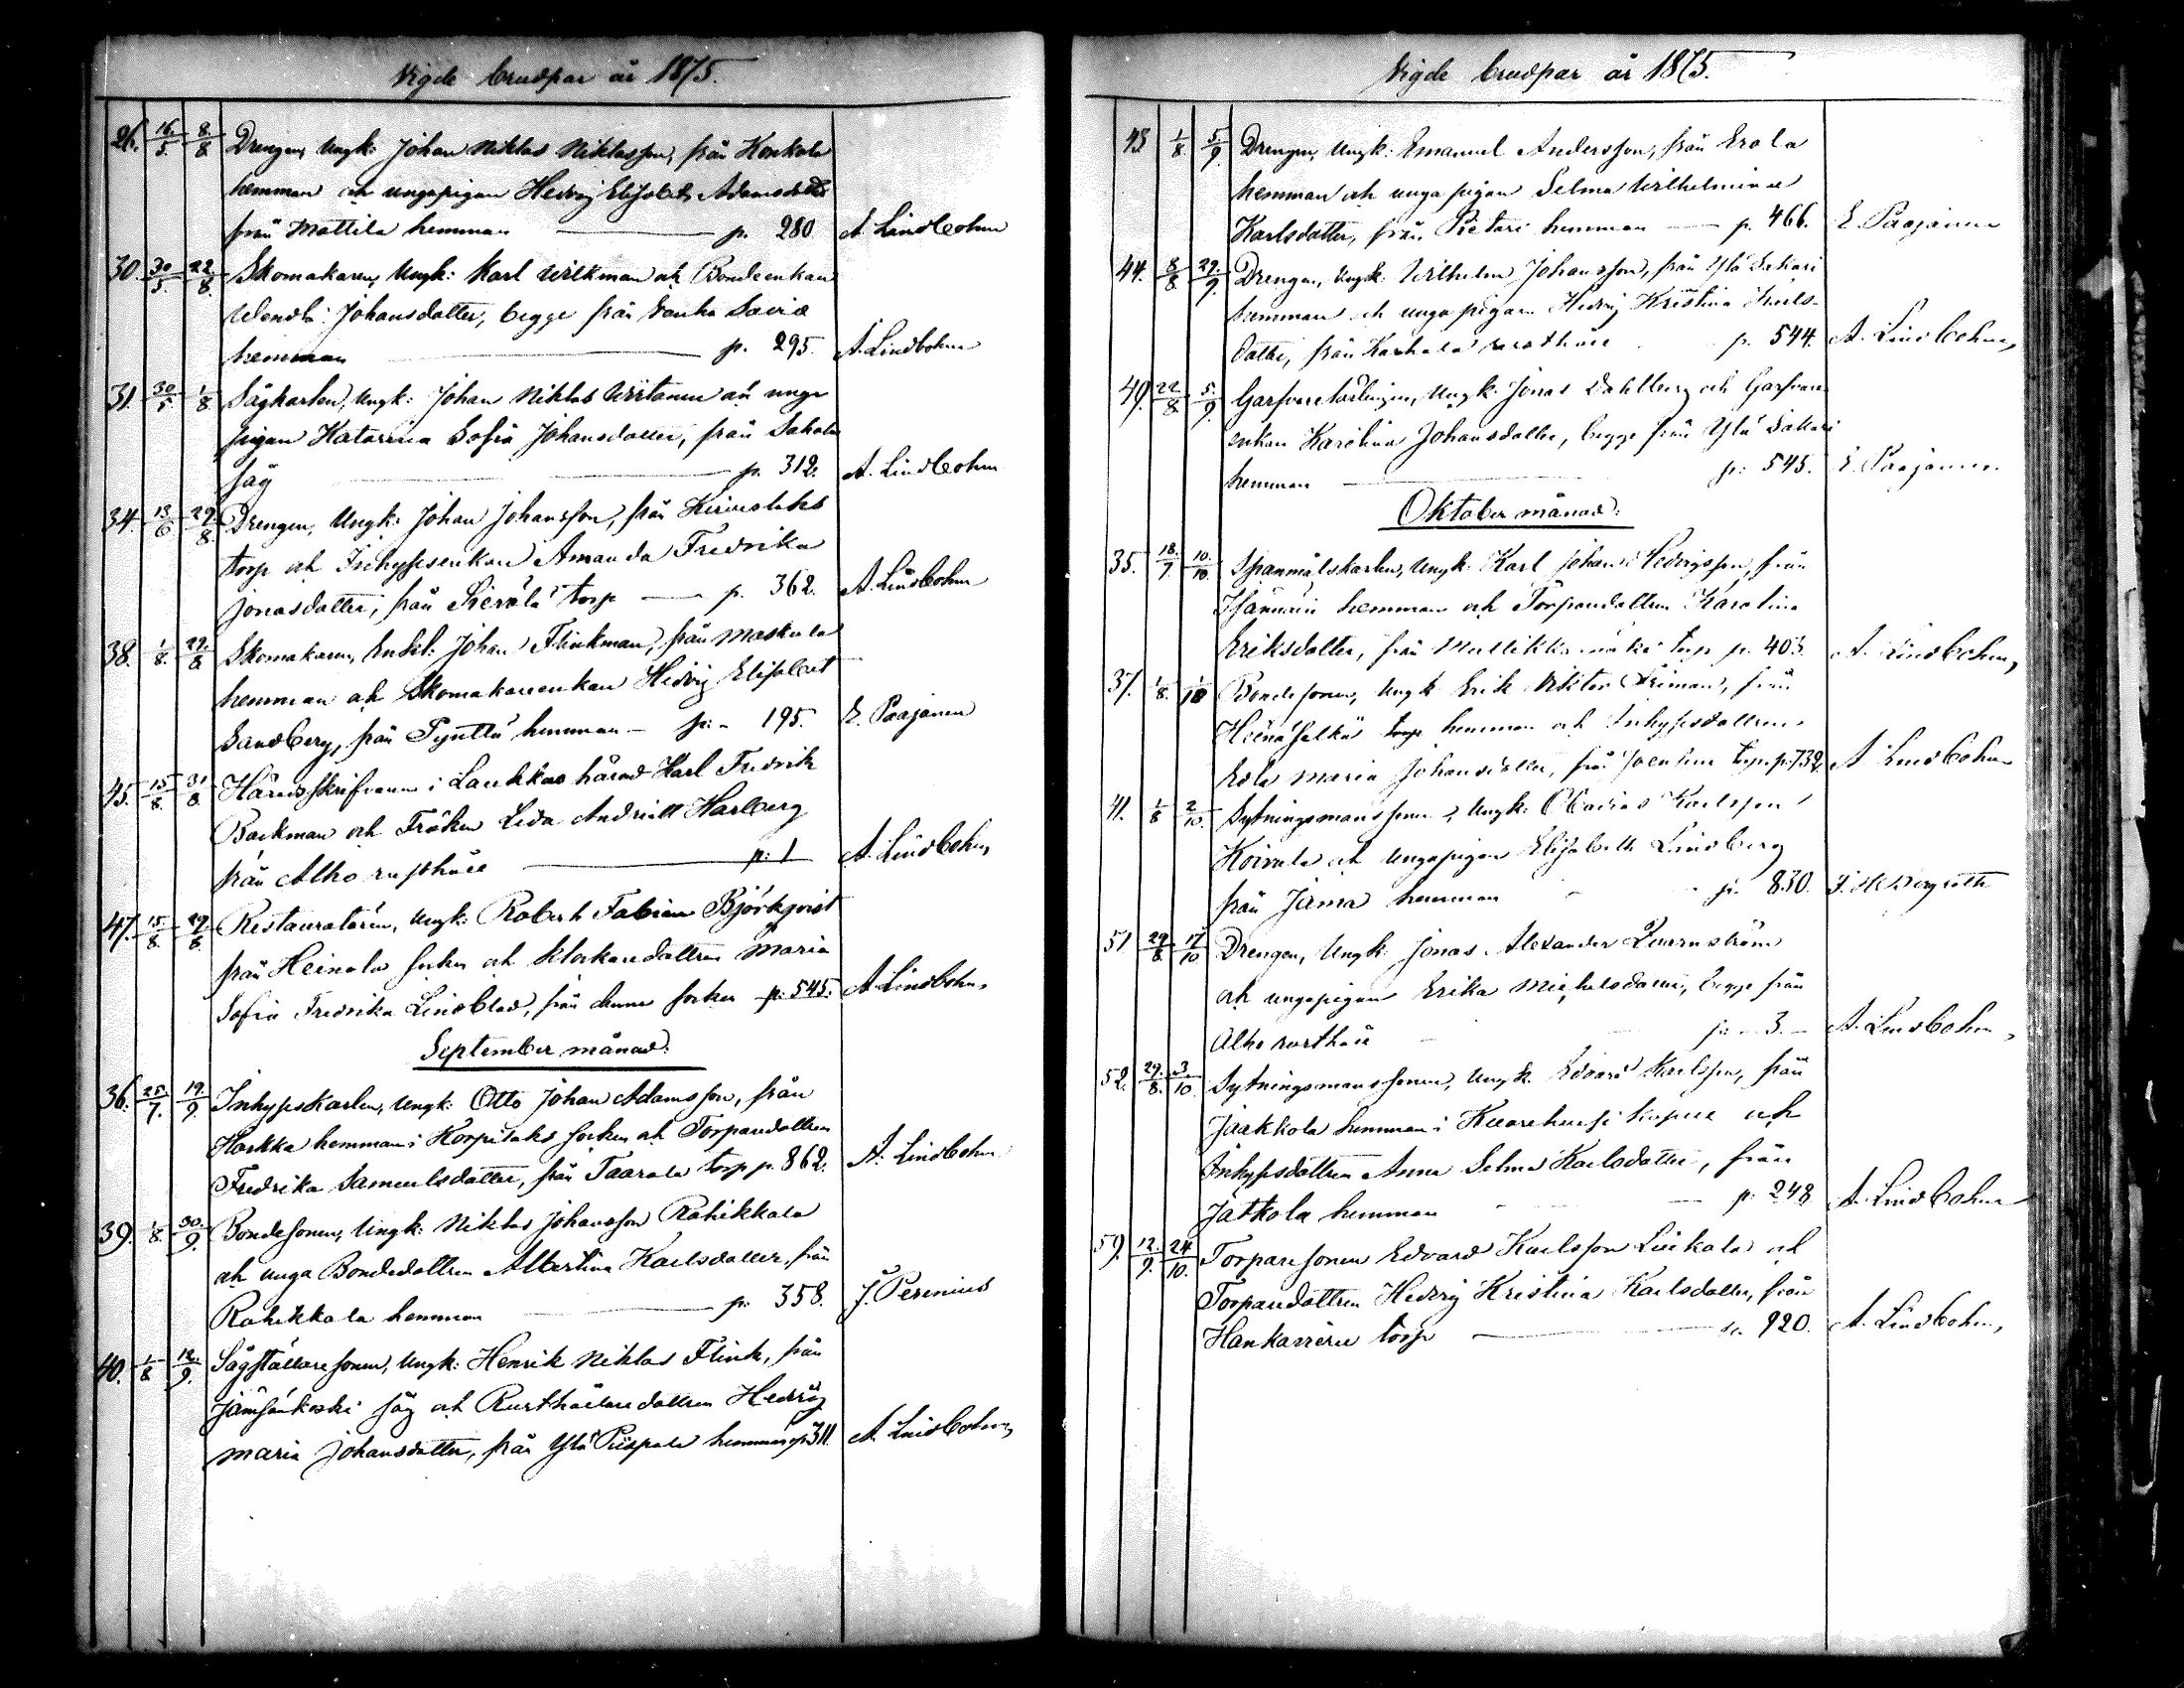 Vigde brudpar år 1875.
26. 16/5 8/8 Drengen, Ungk: Johan Niklas Niklasson, från Konkola
hemman och ungapigan Hedvig Elisabeth Adamsdotter
från Mattila hemman p. 280 A. Lindbohm
30. 30/5 22/8 Skomakaren, Ungk: Karl Wilkman och Bondeenkan
Wendla Johansdotter, begge från Vanha
hemman p. 295. A. Lindbohm
31. 30/5 1/8 Sågkarlen, Ungk: Johan Niklas Wirtanen och unga
pigan Katarina Sofia Johansdotter, från
såg p. 312. A. Lindbohm
34. 13/6 29/8 Drengen, Ungk: Johan Johansson, från
torp och Inhysesenkan Amanda Fredrika
Jonasdotter, från torp p. 362. A. Lindbohm
38. 1/8 29/8 Skomakaren, Enkl: Johan Flinkman, från Maskula
hemman och Skomakareenkan Hedvig Elisabet
Sandberg, från Pynttä hemman p. 195. E. Paajanen
45. 15/8 31/8 Häradsskrifvaren i Laukkas härad Karl Fredrik
Backman och Fröken Lida Harlberg
från Alho rusthåll p. 1 A. Lindbohm
47. 15/8 29/8 Restauratören, Ungk: Robert Fabian Björkqvist
från Heinola socken och Klockaredottren Maria
Sofia Fredrika Lindblad, från denna socken p. 545. A. Lindbohm
September månad:
36. 25/7 19/9 Inhyseskarlen, Ungk: Otto Johan Adamsson, från
Horkka hemman i Korpilaks socken och Torparedottren
Fredrika Samuelsdotter, från Taarala torp p. 862. A. Lindbohm
39. 1/8 30/9 Bondesonen, Ungk: Niklas Johansson Rahikkala
och unga Bondedottren Albertina Karlsdotter, från
Rahikkala hemman p. 358. J. Perenius
40. 1/8 12/9 Sågställaresonen, Ungk: Henrik Niklas Flink, från
Jämsänkoski såg och Rusthållaredottren Hedvig
Maria Johansdotter, från Ylä Piispala hemman p. 311. A. Lindbohm
Vigde brudpar år 1875.
43 1/8 5/9 Drengen, Ungk: Emanuel Andersson, från Erola
hemman och unga pigan Selma Wilhelmina
Karlsdotter, från Pietari hemman p. 466. E. Paajanen
44. 8/8 29/9 Drengen, Ungk: Wilhelm Johansson, från Ylä Sakari
hemman och unga pigan Hedvig Kristina Karls-
dotter, från rusthåll p. 544. A. Lindbohm
49. 22/8 5/9 Garfvarelärlingen, Ungk: Jonas Dahlberg och Garfvare
enkan Karolina Johansdotter, begge från Ylä Sakari
hemman p. 545. E. Paajanen
Oktober månad:
35. 18/7 10/10 Spanmålskarlen, Ungk: Karl Johan Hedvigsson, från
hemman och Torparedottren Karolina
Eriksdotter, från torp p. 403. A. Lindbohm
37. 1/8 1/10 Bondesonen, Ungk: Erik Viktor från
torp hemman och Inhysesdottren
Maria Johansdotter, från torp p. 732. A. Lindbohm
41. 1/8 2/10 Sytningsmanssonen, Ungk: Obadias Karlsson
Koivula och Ungapigan Elisabeth Lindberg
från Jämsä hemman p. 830.
51 29/8 17/10 Drengen, Ungk: Jonas Alexander
och ungapigan Erika Michelsdotter, begge från
Alho rusthåll p. 3. A. Lindbohm
52. 29/8 3/10 Sytningsmanssonen, Ungk: Edvard Karlsson, från
Jaakkola hemman i kapell och
Inhysesdottren Anna Selma Karlsdotter, från
Jatkola hemman p. 248 A. Lindbohm
59. 12/9 24/10 Torparesonen Edvard Karlsson och
Torparedottren Hedvig Kristina Karlsdotter, från
torp p. 920. A. Lindbohm